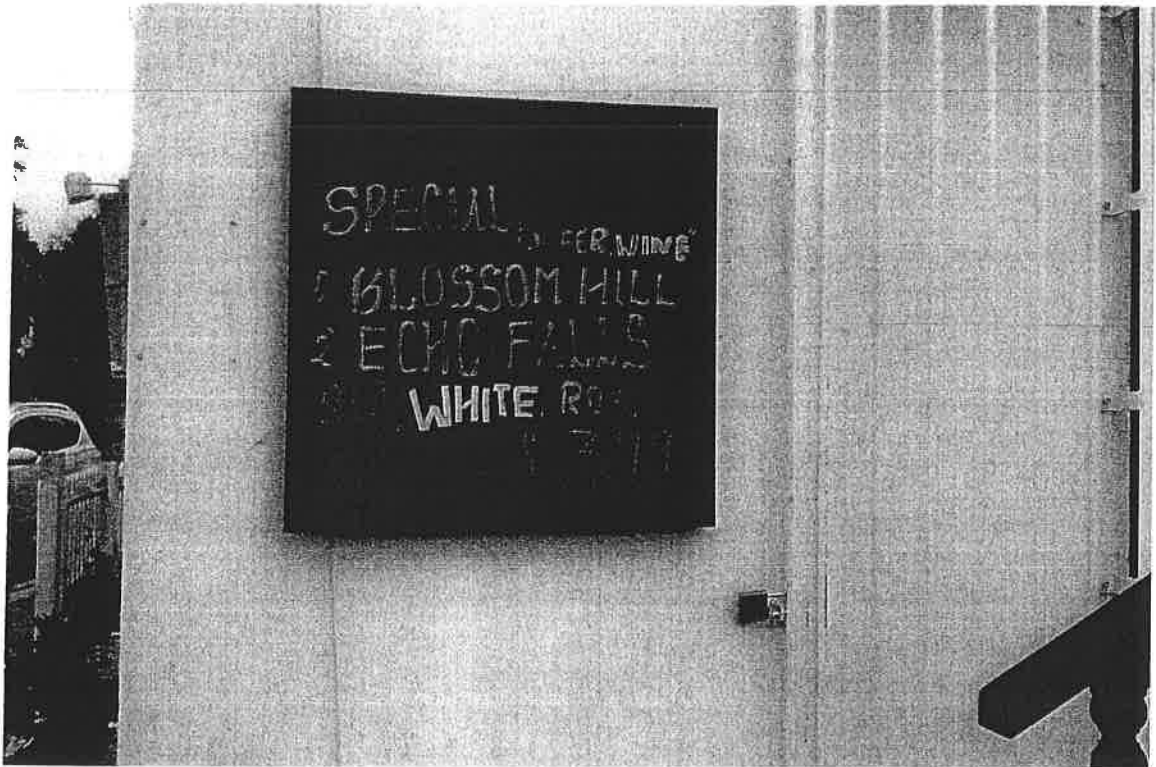 SPECIAL
OFFER. WINE"
1 BLOSSOM HILL
2 ECHO FALLS
WHITE.